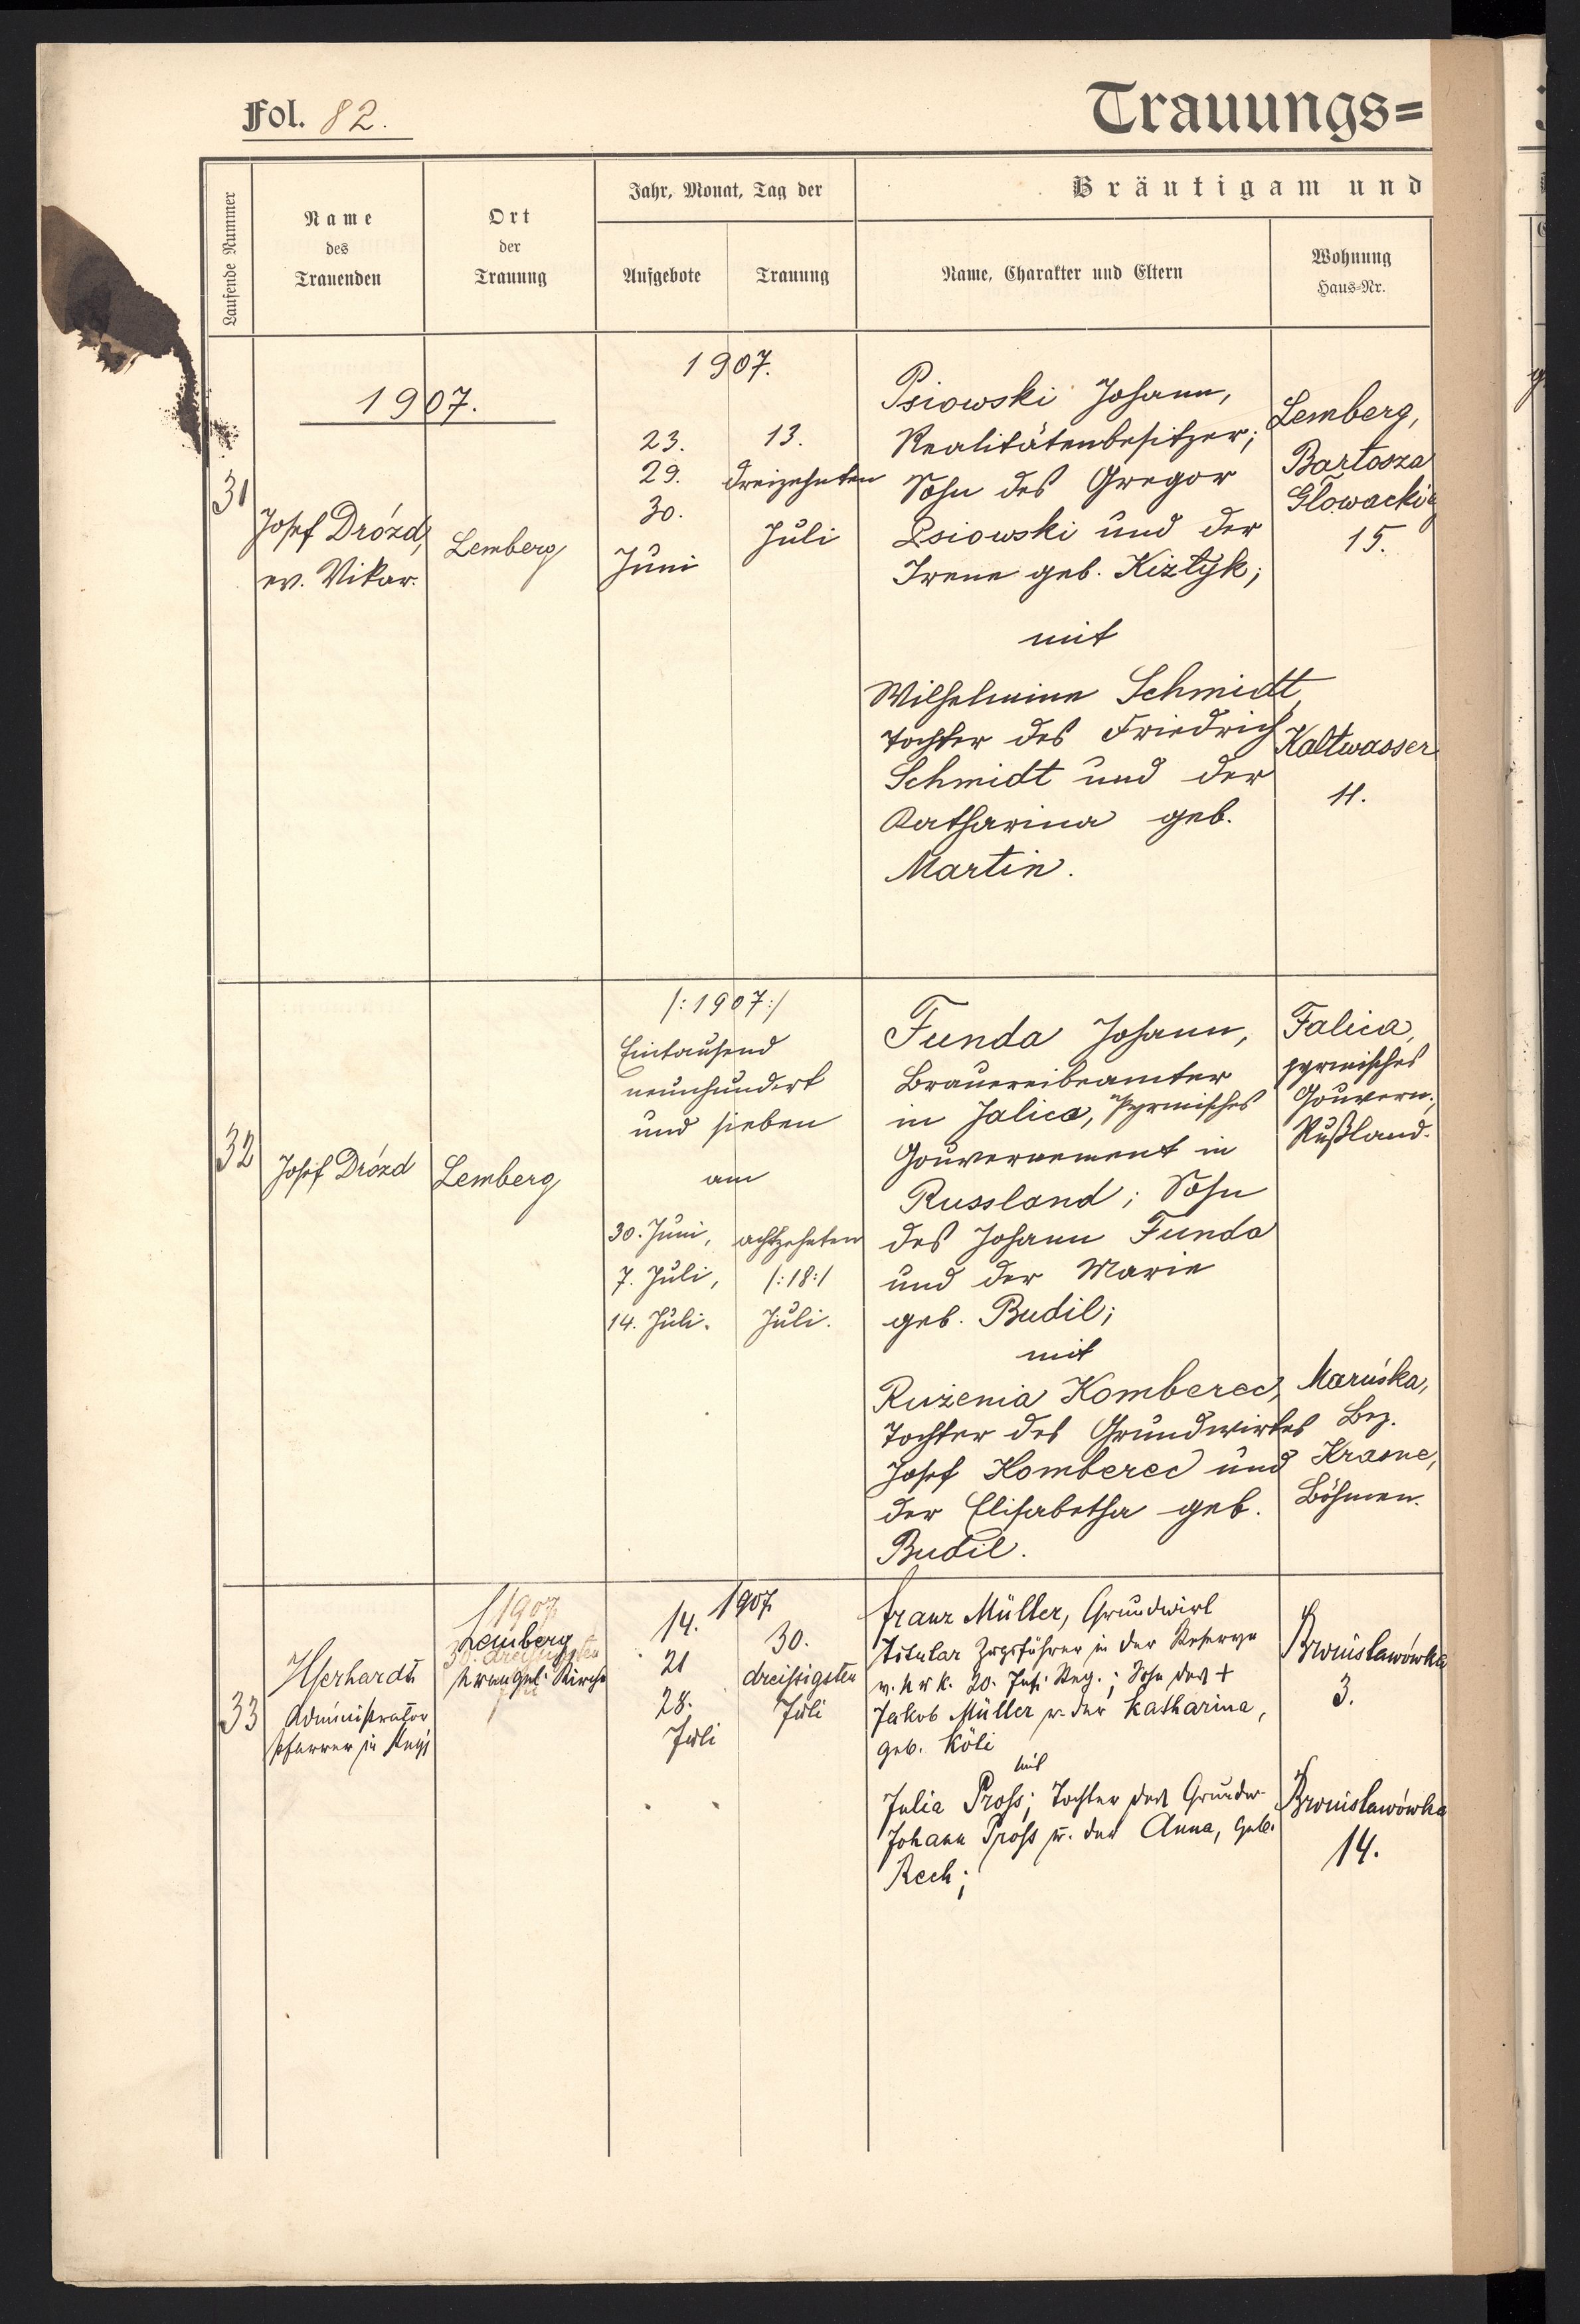 Fol. 82.
Trauungs=
Laufende Nummer
Name
des
Trauenden
Ort
der
Trauung
Jahr, Monat, Tag der
Aufgebote
Trauung
Bräutigam und
Name, Charakter und Eltern
Wohnung
Haus-Nr.
1907.
31
Josef Drózd,
ev. Vikar.
Lemberg
1907.
23.
29.
30.
Juni
13.
dreizehnten
Juli
Psiowski Johann,
Realitätenbesitzer;
Sohn des Gregor
Psiowski und der
Irene geb. Kiztyk;
mit
Wilhelmine Schmidt,
Tochter des Friedrich
Schmidt und der
Katharina geb.
Martin.
Lemberg,
Bartosza
Głowackiego
15.
Kaltwasser
11.
32
Josef Drózd
Lemberg
/:1907:/
Eintausend
neunhundert
und sieben
am
30. Juni,
7. Juli,
14. Juli.
achtzehnten
/:18:/
Juli.
Funda Johann,
Brauereibeamter
in Jalica,
Gouvernement in
Russland; Sohn
des Johann Funda
und der Marie
geb. Budil;
mit
Ruženia Komberec,
Tochter des Grundwirtes
Josef Komberec und
der Elisabetha geb.
Budil.
Falica,
Gouvern.,
Rußland.
Maruśka,
Bez.
Krasne,
Böhmen.
33
Administrator
Pfarrer in
1907
Lemberg
30. dreissigsten
evangel. Kirche
1907
14.
21
28.
Juli
30.
dreissigsten
Juli
Franz Müller, Grundwirt
Titular Zugsführer in der Reserve
v. k u k. 20. Inf. Reg.; Sohn des +
Jakob Müller u. der Katharina,
geb. Köli
mit
Julia Pross; Tochter des Grundw.
Johann Pross u. der Anna, geb.
Rech;
Bronisławówka
3.
Bronisławówka
14.